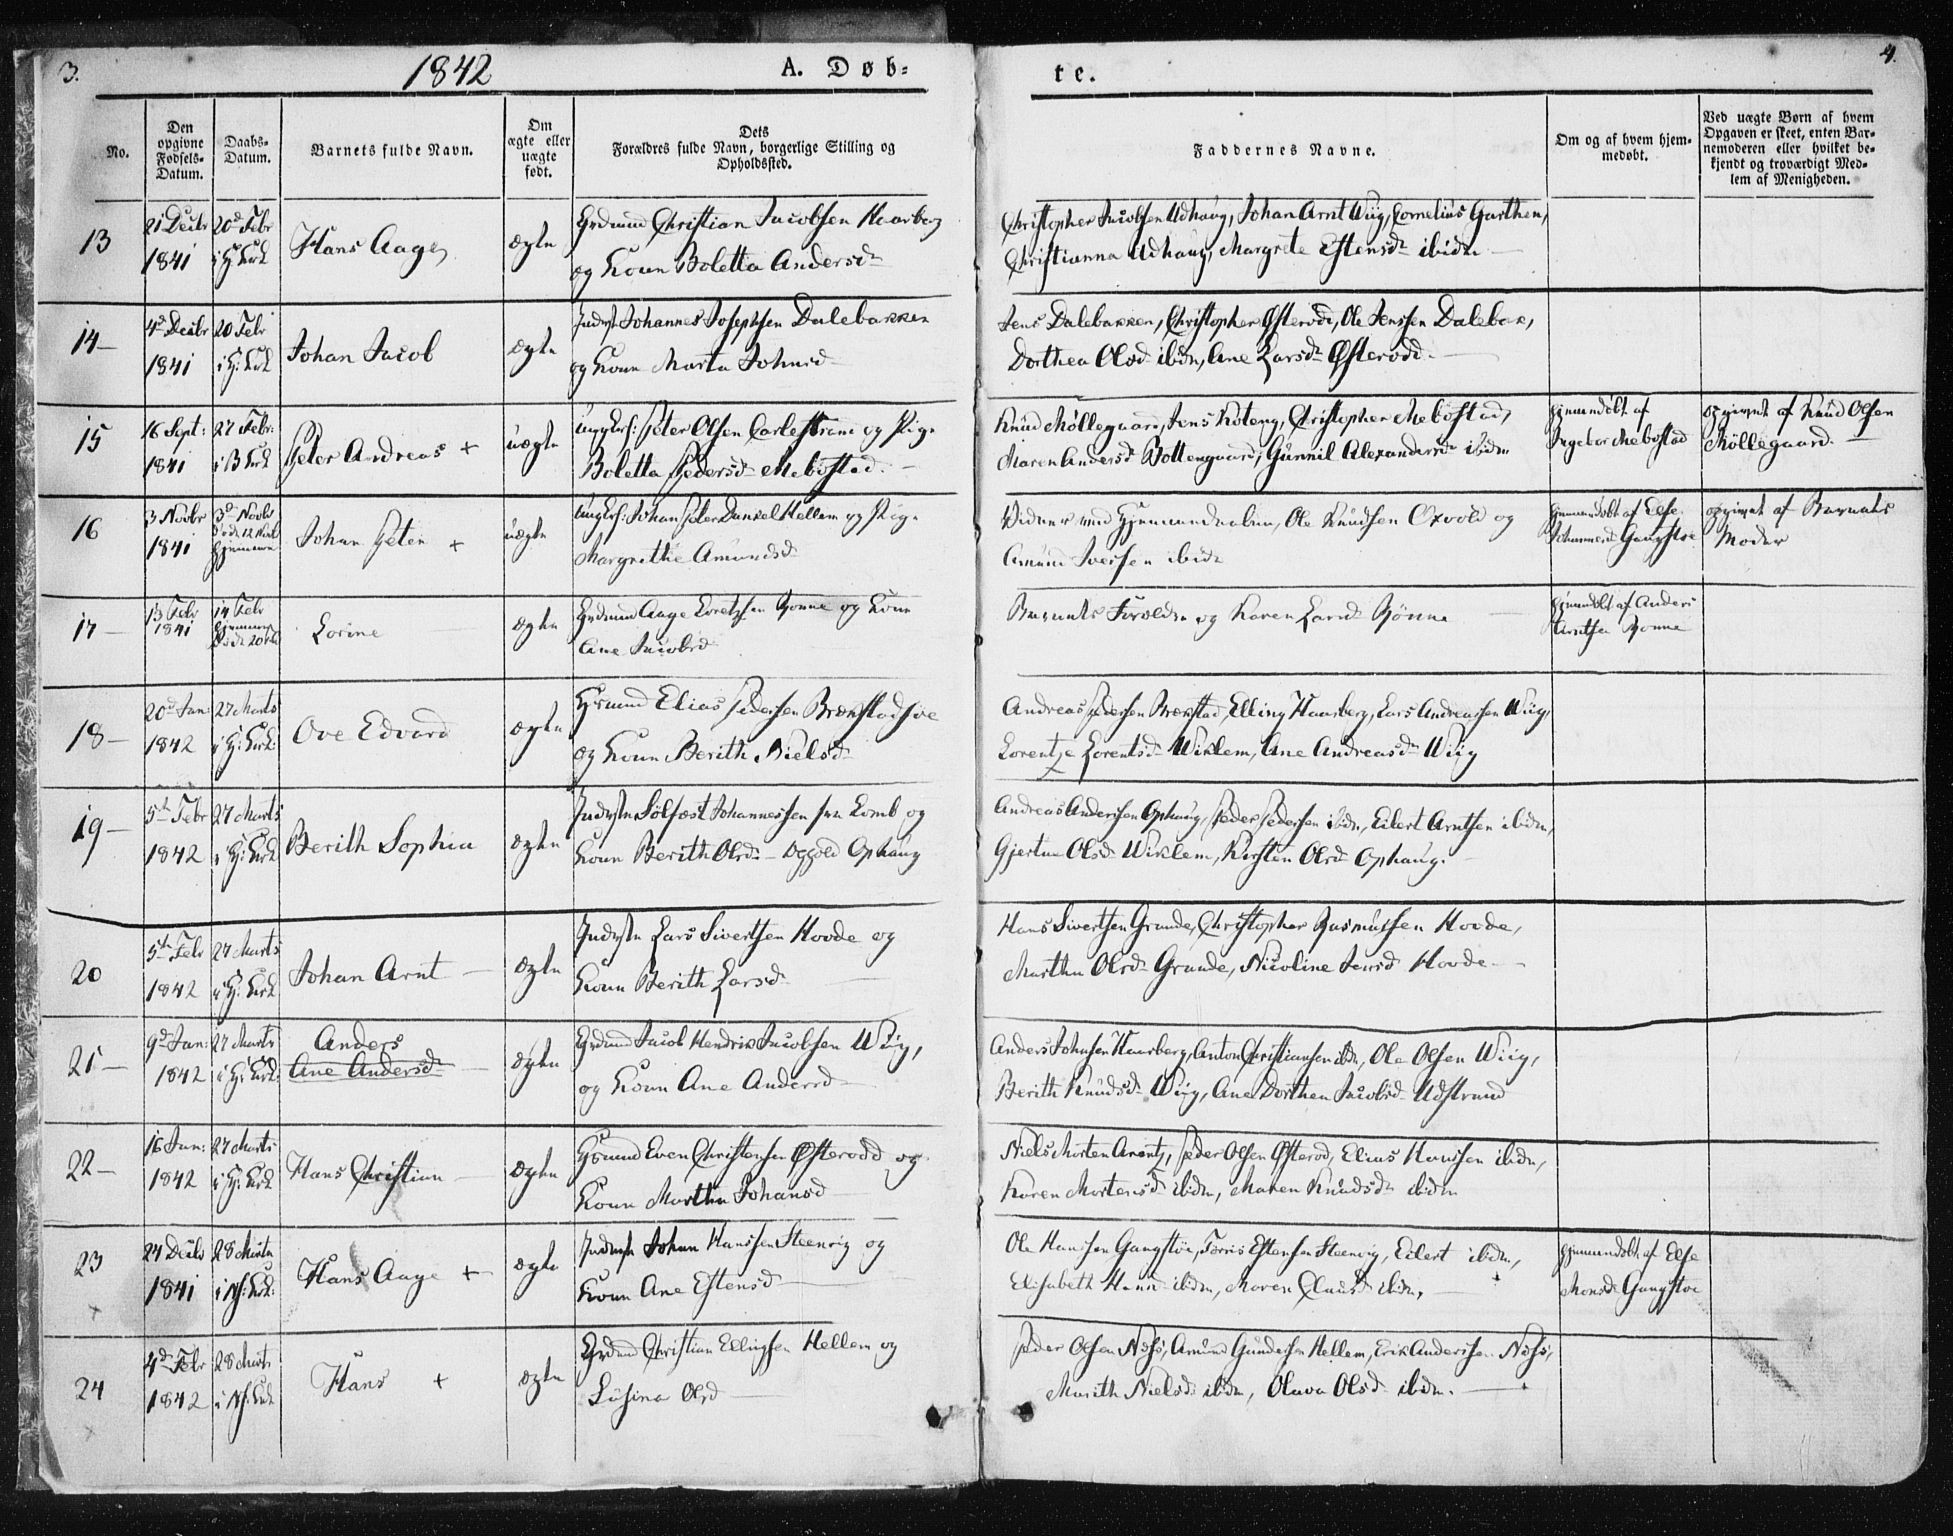 3.
1842
A. Døb-
te.
4.
No.
Den opgivne Fødsels-Datum.
Daabs-Datum.
Barnets fulde Navn.
Om ægte eller uægte født.
Dets Forældres fulde Navn, borgerlige Stilling og Opholdssted.
Faddernes Navne.
Om og af hvem hjemmedøbt.
Ved uægte Børn af hvem Opgaven er skeet, enten Barnemoderen eller hvilket bekjendt og troværdigt Medlem af Menigheden.
13
21 Decbr 20d Febr
1841
Hans Aage
ægte
Christian Jacobsen Haarberg
og Konen Boletta Andersd
Christopher Jacobsen Udhaug, Johan Arnt Wiig, Cornelius Garthen,
Christianna Udhaug, Margrete Estensd ibidm
14
4d Decbr 20 Febr
1841
Johan Jacob
ægte
Inderst Johannes Josephsen Dalebakken
og Konen Marta Johnsd
Jens Dalebakken, Christopher Østeraad, Ole Jenssen Dalebak,
Dorthea Olsd ibidm, Ane Larsd Østeraad
15
16 Sept: 27 Febr:
1841
Peter Andreas +
uægte
Ungkrl: Peter Olsen Carlestrand og Pige
Boletta Pedersd Mebostad
Knud Møllegaard, Jens Koteng, Christopher Mebostad,
Maren Andersd Bottengaard, Gunnil Alexandersd ibidm
hjemmedøbt af
Ingebor Mebostad
opgivet af Knud Olsen
Møllegaard
16
3 Novbr 3d Novbr
1841
Johan Peter +
uægte
Ungkrl: Johan Peter Hellem og Pige
Margrethe Amundsd
Vidner ved Hjemmedaaben, Ole Knudsen Oxvold og
Amund Iversen ibidm
hjemmedøbt af Else
Gangstøe
opgivet af Barnets
Moder
17
13 Febr 14 Febr
1841
Lorine
ægte
Aage Lorentzen Rønne og Konen
Ane Jacobsd
Barnets Forældre og Karen Larsd Rønne
hjemmedøbt af Anders
Arntsen Rønne
18
20d Jan: 27 Marts
1842
Ove Edvard
ægte
Husmand Elias Pedersen Brækstadhoe
og Konen Berith Nielsd
Andreas Pedersen Brækstad, Elling Haarberg, Lars Andreassen Wiig,
Lorentze Lorentsd Wiklem, Ane Andreasd Wiig
19
5t Febr 27 Marts
1842
Berith Sophia
ægte
Inderste Solfæst Johannessen fra Lomb og
Konen Berith Olsd Ophold Ophaug
Andreas Andersen Ophaug, Peder Pedersen ibidm, Eilert Arntsen ibidm,
Gjertrue Olsd Wiklem, Kirsten Olsd Ophaug.
20
5t Febr 27 Marts
1842
Johan Arnt
ægte
Inderste Lars Sivertsen Hovde og
Konen Berith Larsd
Hans Sivertsen Grande, Christopher Rasmussen Hovde,
Marthe Olsd Grande, Nicoline Jensd Hovde
21
9d Jan: 27 Marts
1842
Anders
Ane Andersd
ægte
Jacob Hendrik Jacobsen Wiig,
og Konen Ane Andersd
Anders Johnsen Haarberg, Anton Christiansen ibdm, Ole Olsen Wiig,
Berith Knudsd Wiig, Ane Dorthea Jacobsd Udstrand
22
16 Jan: 27 Marts
1842
Hans Christian
ægte
Husmand Even Christensen Østeraad og
Konen Marthe Johansd
Niels Morten Arentz, Peder Olsen Østeraad, Elias Hansen ibidm,
Karen Mortensd ibidm, Maren Knudsd ibidm
23
24 Decbr 28 Martz
1841
Hans Aage +
ægte
Inderst Johan Hanssen Steenvig og
Konen Ane Estensd
Ole Hansen Gangstøe, Tørris Estensen Steenvig, Eilert ibidm,
Elisabeth Hansd ibidm, Maren Clausd ibidm,
hjemmedøbt af Else
Monsd Gangstøe
24
4d Febr 28 Marts
1842
Hans +
ægte
Christian Ellingsen Hellem og
Lusina Olsd
Peder Olsen Næss, Amund Gundersen Hellem, Erik Andersen Næss,
Marith Nielsd ibidm, Olava Olsd ibidm.